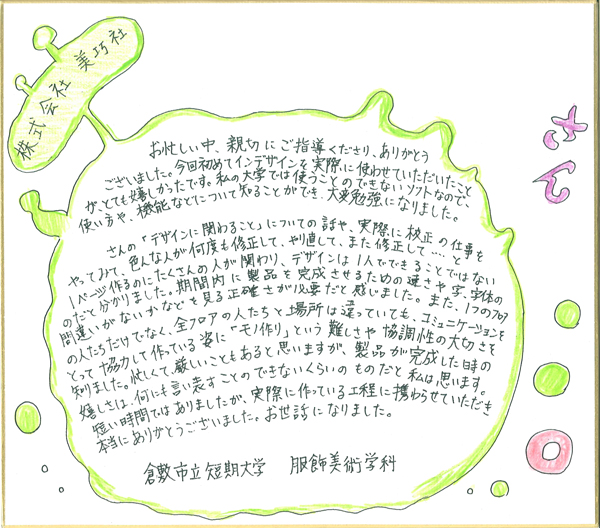 株式会社 美巧社
さん
お忙しい中、親切にご指導くださり、ありがとう
ございました。今回初めてインデザインを実際に使わせていただいたこと
が、とても嬉しかったです。私の大学では使うことのできないソフトなので、
使い方や、機能などについて知ることができ、大変勉強になりました。
さんの「デザインに関わること」についての話や、実際に校正の仕事を
やってみて、色んな人が何度も修正して、やり直して、また修正して‥‥と
1ページ作るのにたくさんの人が関わり、デザインは1人でできることではない
のだと分かりました。期間内に製品を完成させるための速さや字、字体の
間違いがないかなどを見る正確さが必要だと感じました。また、1つのフロア
の人たちだけでなく、全フロアの人たちと場所は違っていても、コミュニケーションを
とって協力して作っている姿に「モノ作り」という難しさや協調性の大切さを
知りました。忙しくて厳しいこともあると思いますが、製品が完成した時の
嬉しさは、何にも言い表すことのできないくらいのものだと私は思います。
短い時間ではありましたが、実際に作っている工程に携わらせていただき
本当にありがとうございました。お世話になりました。
倉敷市立短期大学 服飾美術学科